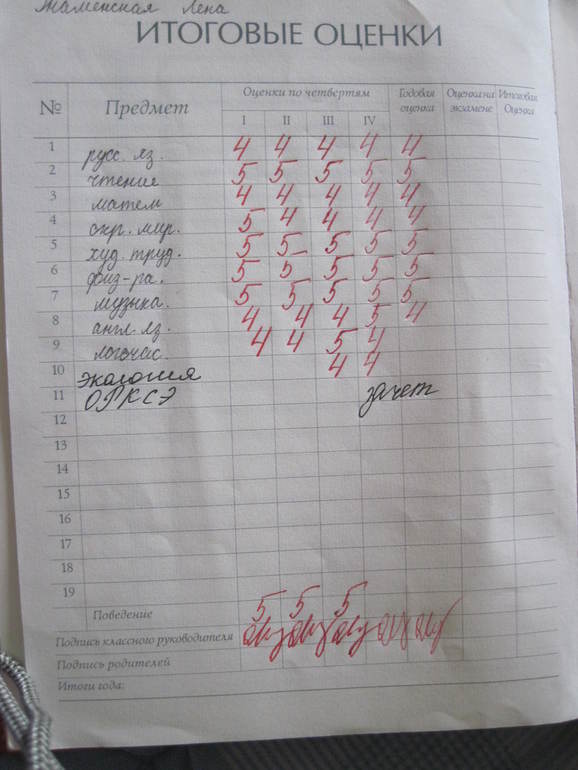 Лена
ИТОГОВЫЕ ОЦЕНКИ
№ Предмет Оценки по четвертям Годовая оценка Оценка на экзамене Итоговая Оценка
I II III IV
1 русс. яз. 4 4 4 4 4
2 чтение 5 5 5 5 5
3 матем 4 4 4 4 4
4 окр. мир. 5 4 4 4 4
5 худ. труд. 5 5 5 5 5
6 физ-ра. 5 5 5 5 5
7 музыка. 5 5 5 5 5
8 англ. яз. 4 4 4 5 4
9 логочас. 4 4 5 4
10 Экология 4 4
11 ОРКСЭ зачет
12
13
14
15
16
17
18
19
Поведение 5 5 5
Подпись классного руководителя
Подпись родителей
Итоги года: